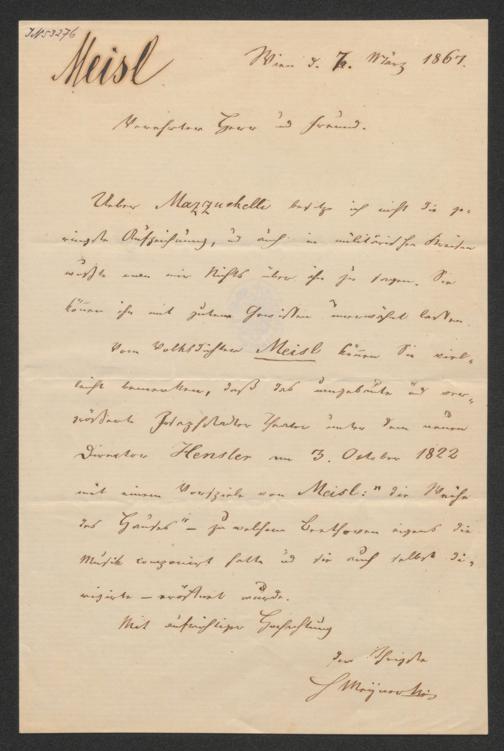 JN 53276
Meisl
Wien d. 7. März 1867.
Verehrter Herr und Freund.
Ueber Mazzuchelli besitze ich nicht die ge-
ringste Aufzeichnung, und auch in militärischen Kreisen
wußte man mir Nichts über ihn zu sagen. Sie
können ihn mit gutem Gewissen unerwähnt lassen.
Vom Volksdichter Meisl können Sie viel-
leicht bemerken, daß das umgebaute und ver-
größerte Josephstadter Theater unter dem neuen
Director Hensler am 3. October 1822
mit einem Vorspiele von Meisl: "die Weihe
des Hauses" – zu welchem Beethoven eigens die
Musik componirt hatte und sie auch selbst di-
rigirte – eröffnet wurde.
Mit aufrichtiger Hochachtung
der Ihrigste